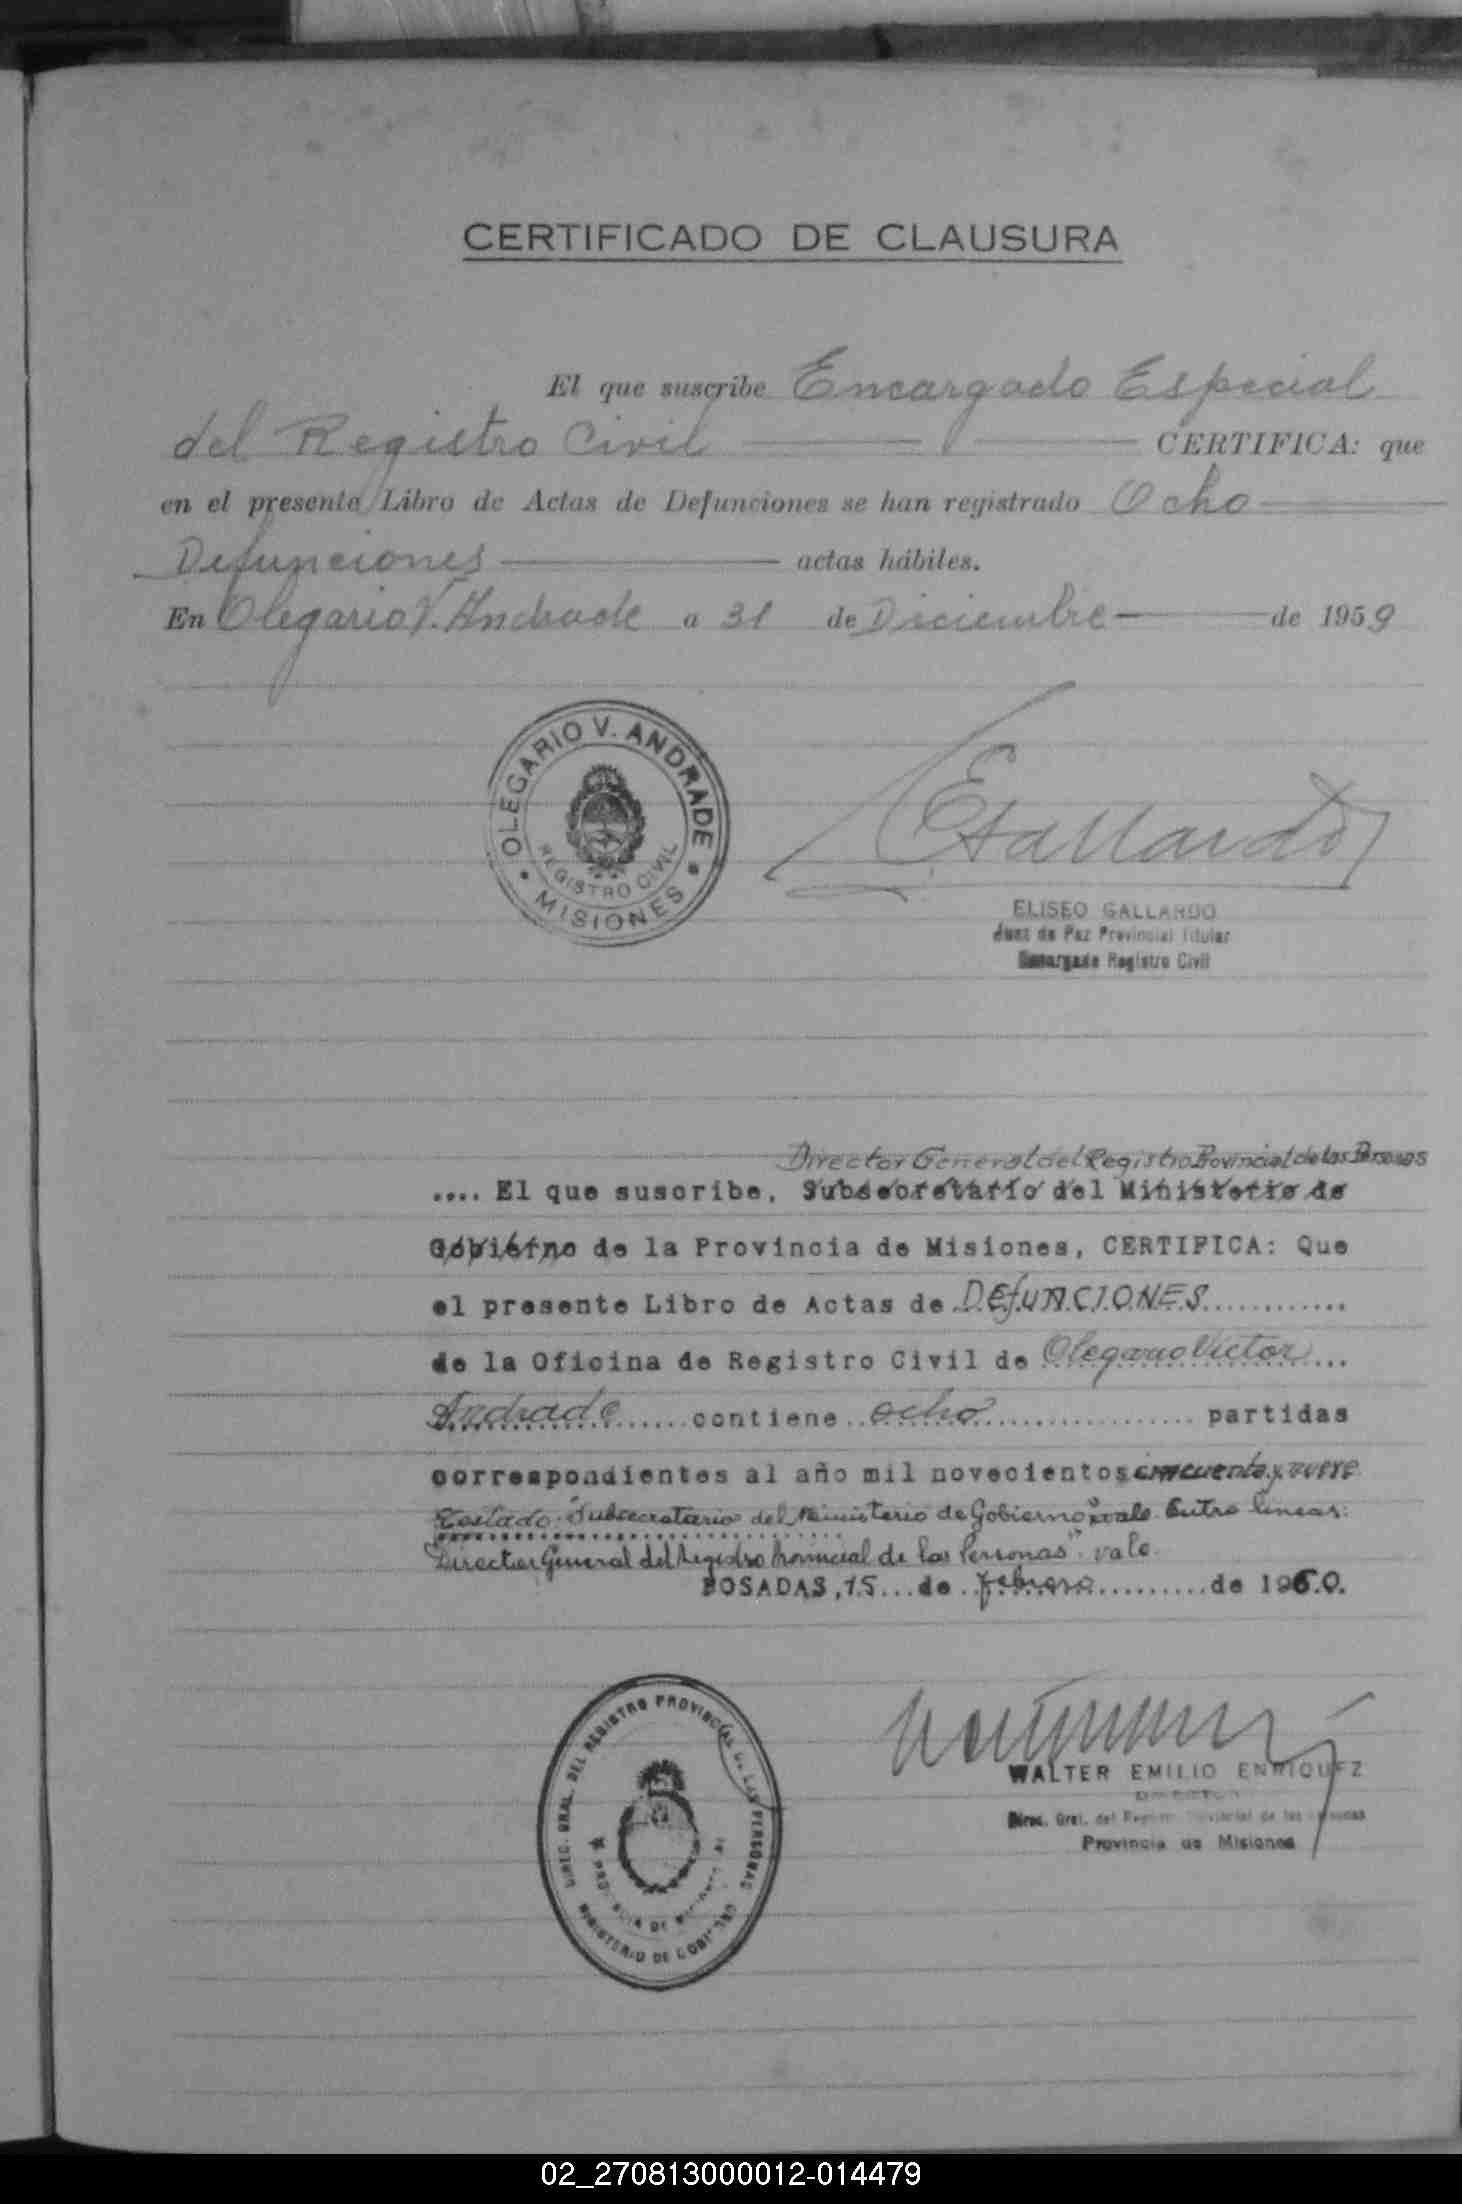 CERTIFICADO DE CLAUSURA
El que suscribe Encargado Especial
del Registro Civil CERTIFICA: que
en el presente Libro de Actas de Defunciones se han registrado Ocho
Defunciones actas hábiles.
En Olegario V. Andrade a 31 de Diciembre de 1959
OLEGARIO V. ANDRADE
REGISTRO CIVIL
MISIONES
EGallardo
ELISEO GALLARDO
Juez de Paz Provincial Titular
Encargado Registro Civil
Director General del Registro Provincial de las Personas
.... El que suscribe, Subsecretario del Ministerio de
Gobierno de la Provincia de Misiones, CERTIFICA: Que
el presente Libro de Actas de DEFUNCIONES
de la Oficina de Registro Civil de Olegario Victor
Andrade contiene ocho partidas
correspondientes al año mil novecientos cincuenta y nueve
Testado: "Subsecretario del Ministerio de Gobierno" vale. Entre lineas:
"Director General del Registro Provincial de las Personas". vale.
POSADAS, 15 de febrero de 1960.
DIREC. GRAL. DEL REGISTRO PROVINCIAL DE LAS PERSONAS
PROVINCIA DE MISIONES
MINISTERIO DE GOBIERNO
WALTER EMILIO ENRIQUEZ
DIRECTOR
Direc. Gral. del Registro Provincial de las Personas
Provincia de Misiones
02_270813000012-014479